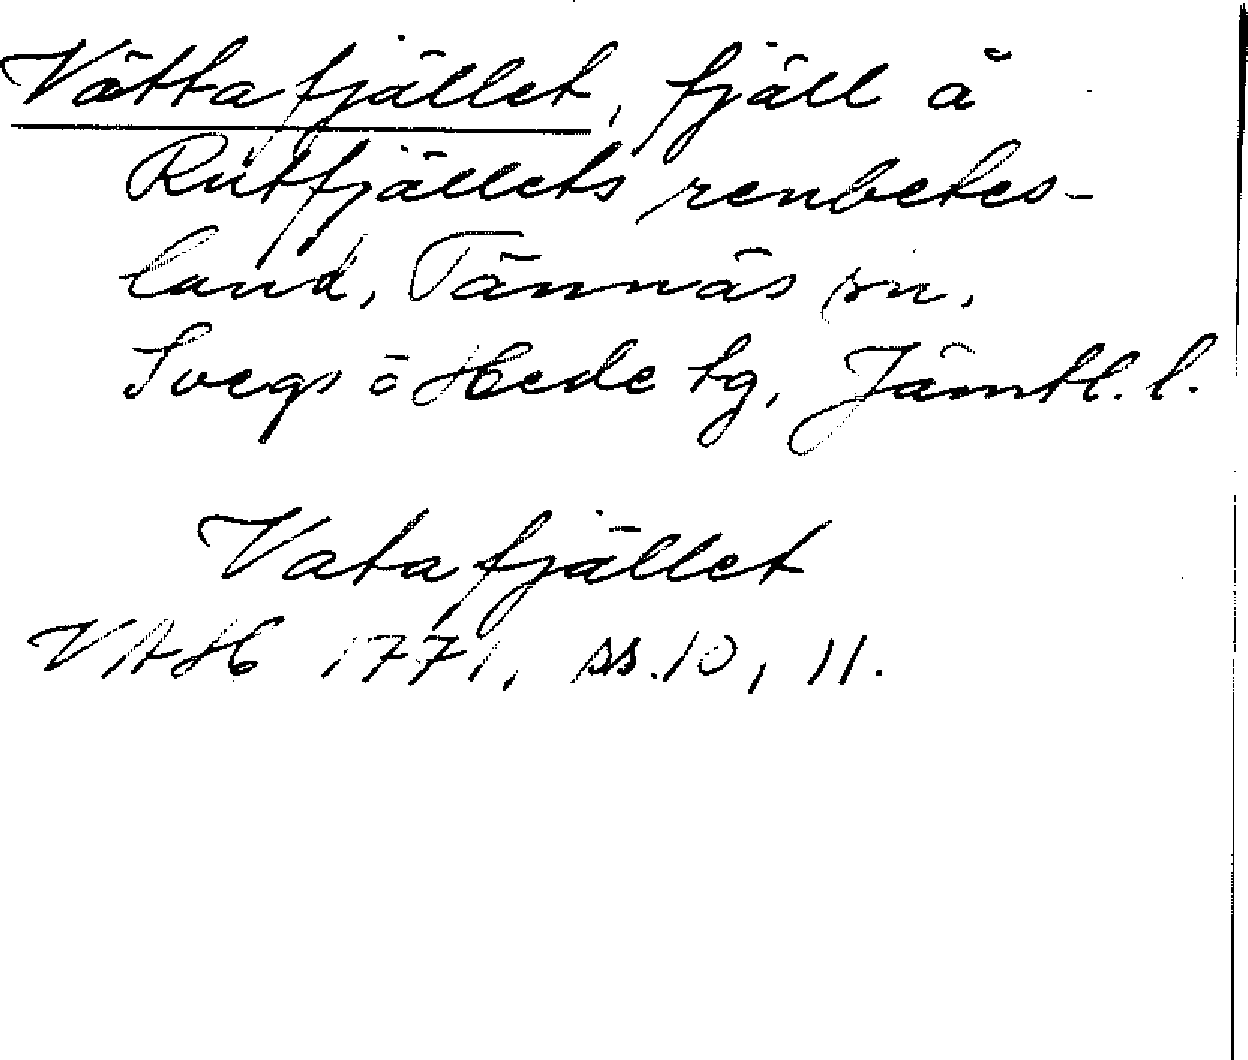 Vättafjället, fjäll å
Rutfjällets renbetes-
land, Tännäs sn,
Svegs o Hede tg, Jämtl. l.
Vatafjället
VAH 1771, ss. 10, 11.